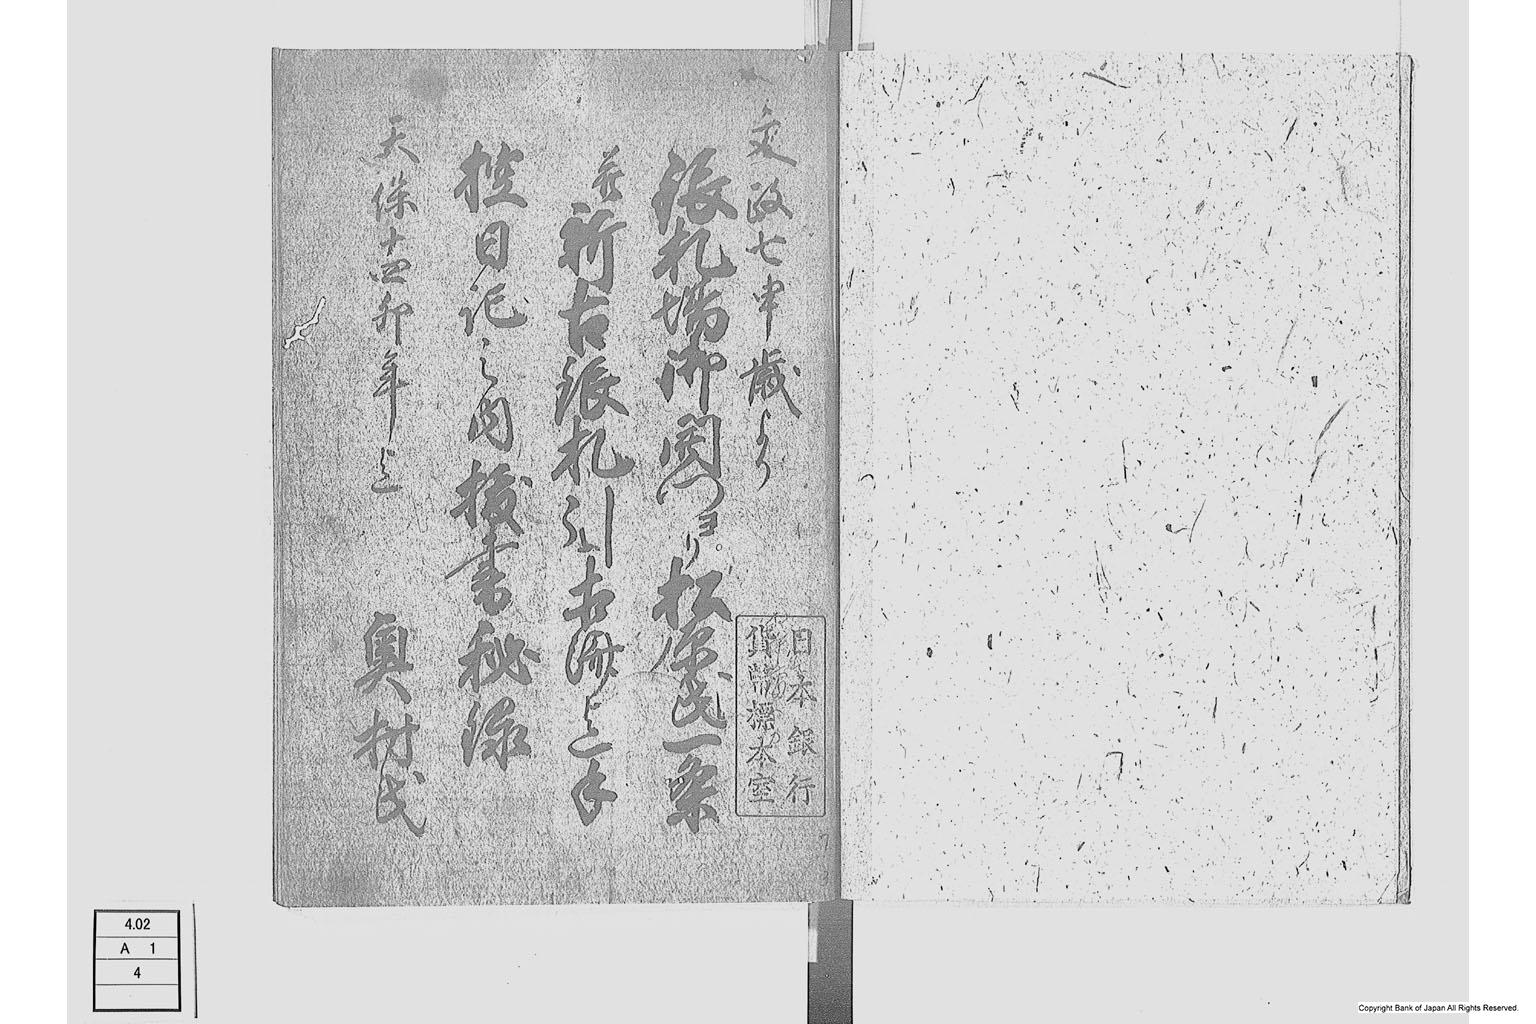 文政七申歳より
張札場御開ヨリ松原氏一条
并新古張札引
控日記之内抜書秘録
天保十四卯年迄
奥村氏
日本銀行
貨幣標本室
4.02
A 1
4
Copyright Bank of Japan All Rights Reserved.